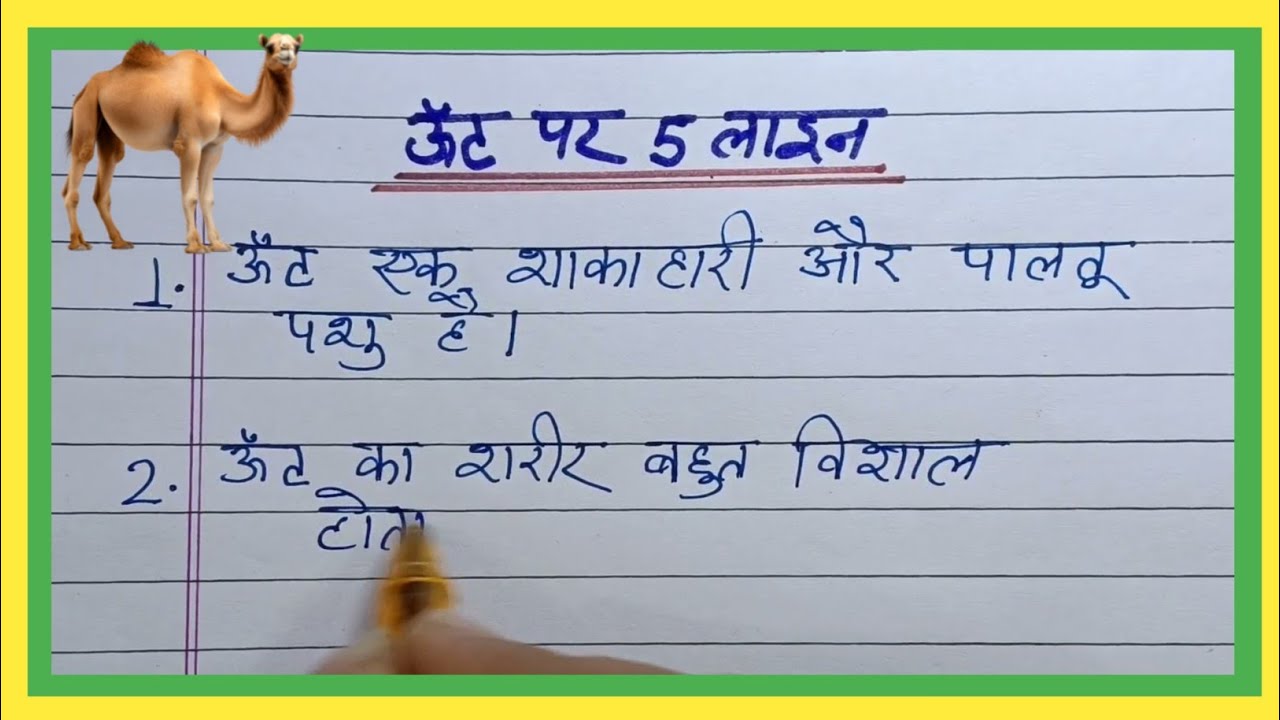 ऊँट पर 5 लाइन
1. ऊँट एक शाकाहारी और पालतू
पशु है।
2. ऊँट का शरीर बहुत विशाल
होता